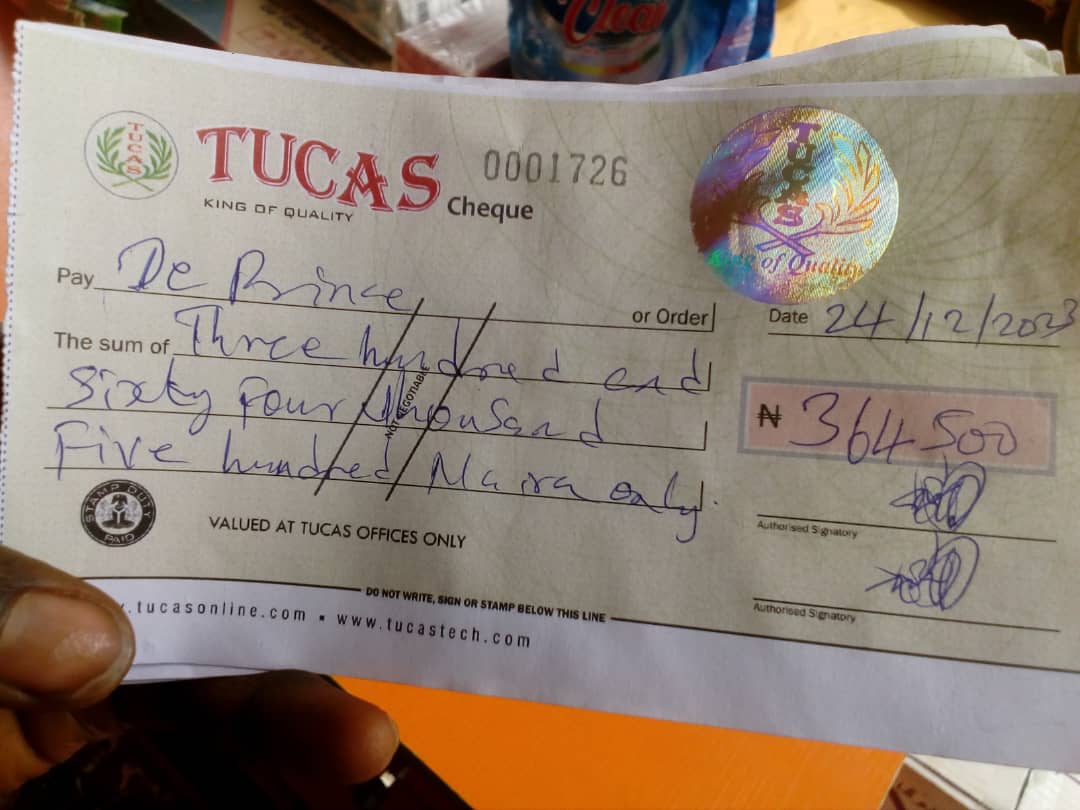 Clear
TUCAS
TUCAS
KING OF QUALITY
Cheque
0001726
TUCAS
King of Quality
Pay De Prince or Order
Date 24/12/2023
The sum of Three hundred and
Sixty Four thousand
Five hundred Naira only.
NOT NEGOTIABLE
₦ 364 500
STAMP DUTY
PAID
VALUED AT TUCAS OFFICES ONLY
Authorised Signatory
Authorised Signatory
DO NOT WRITE, SIGN OR STAMP BELOW THIS LINE
.tucasonline.com ▪ www.tucastech.com